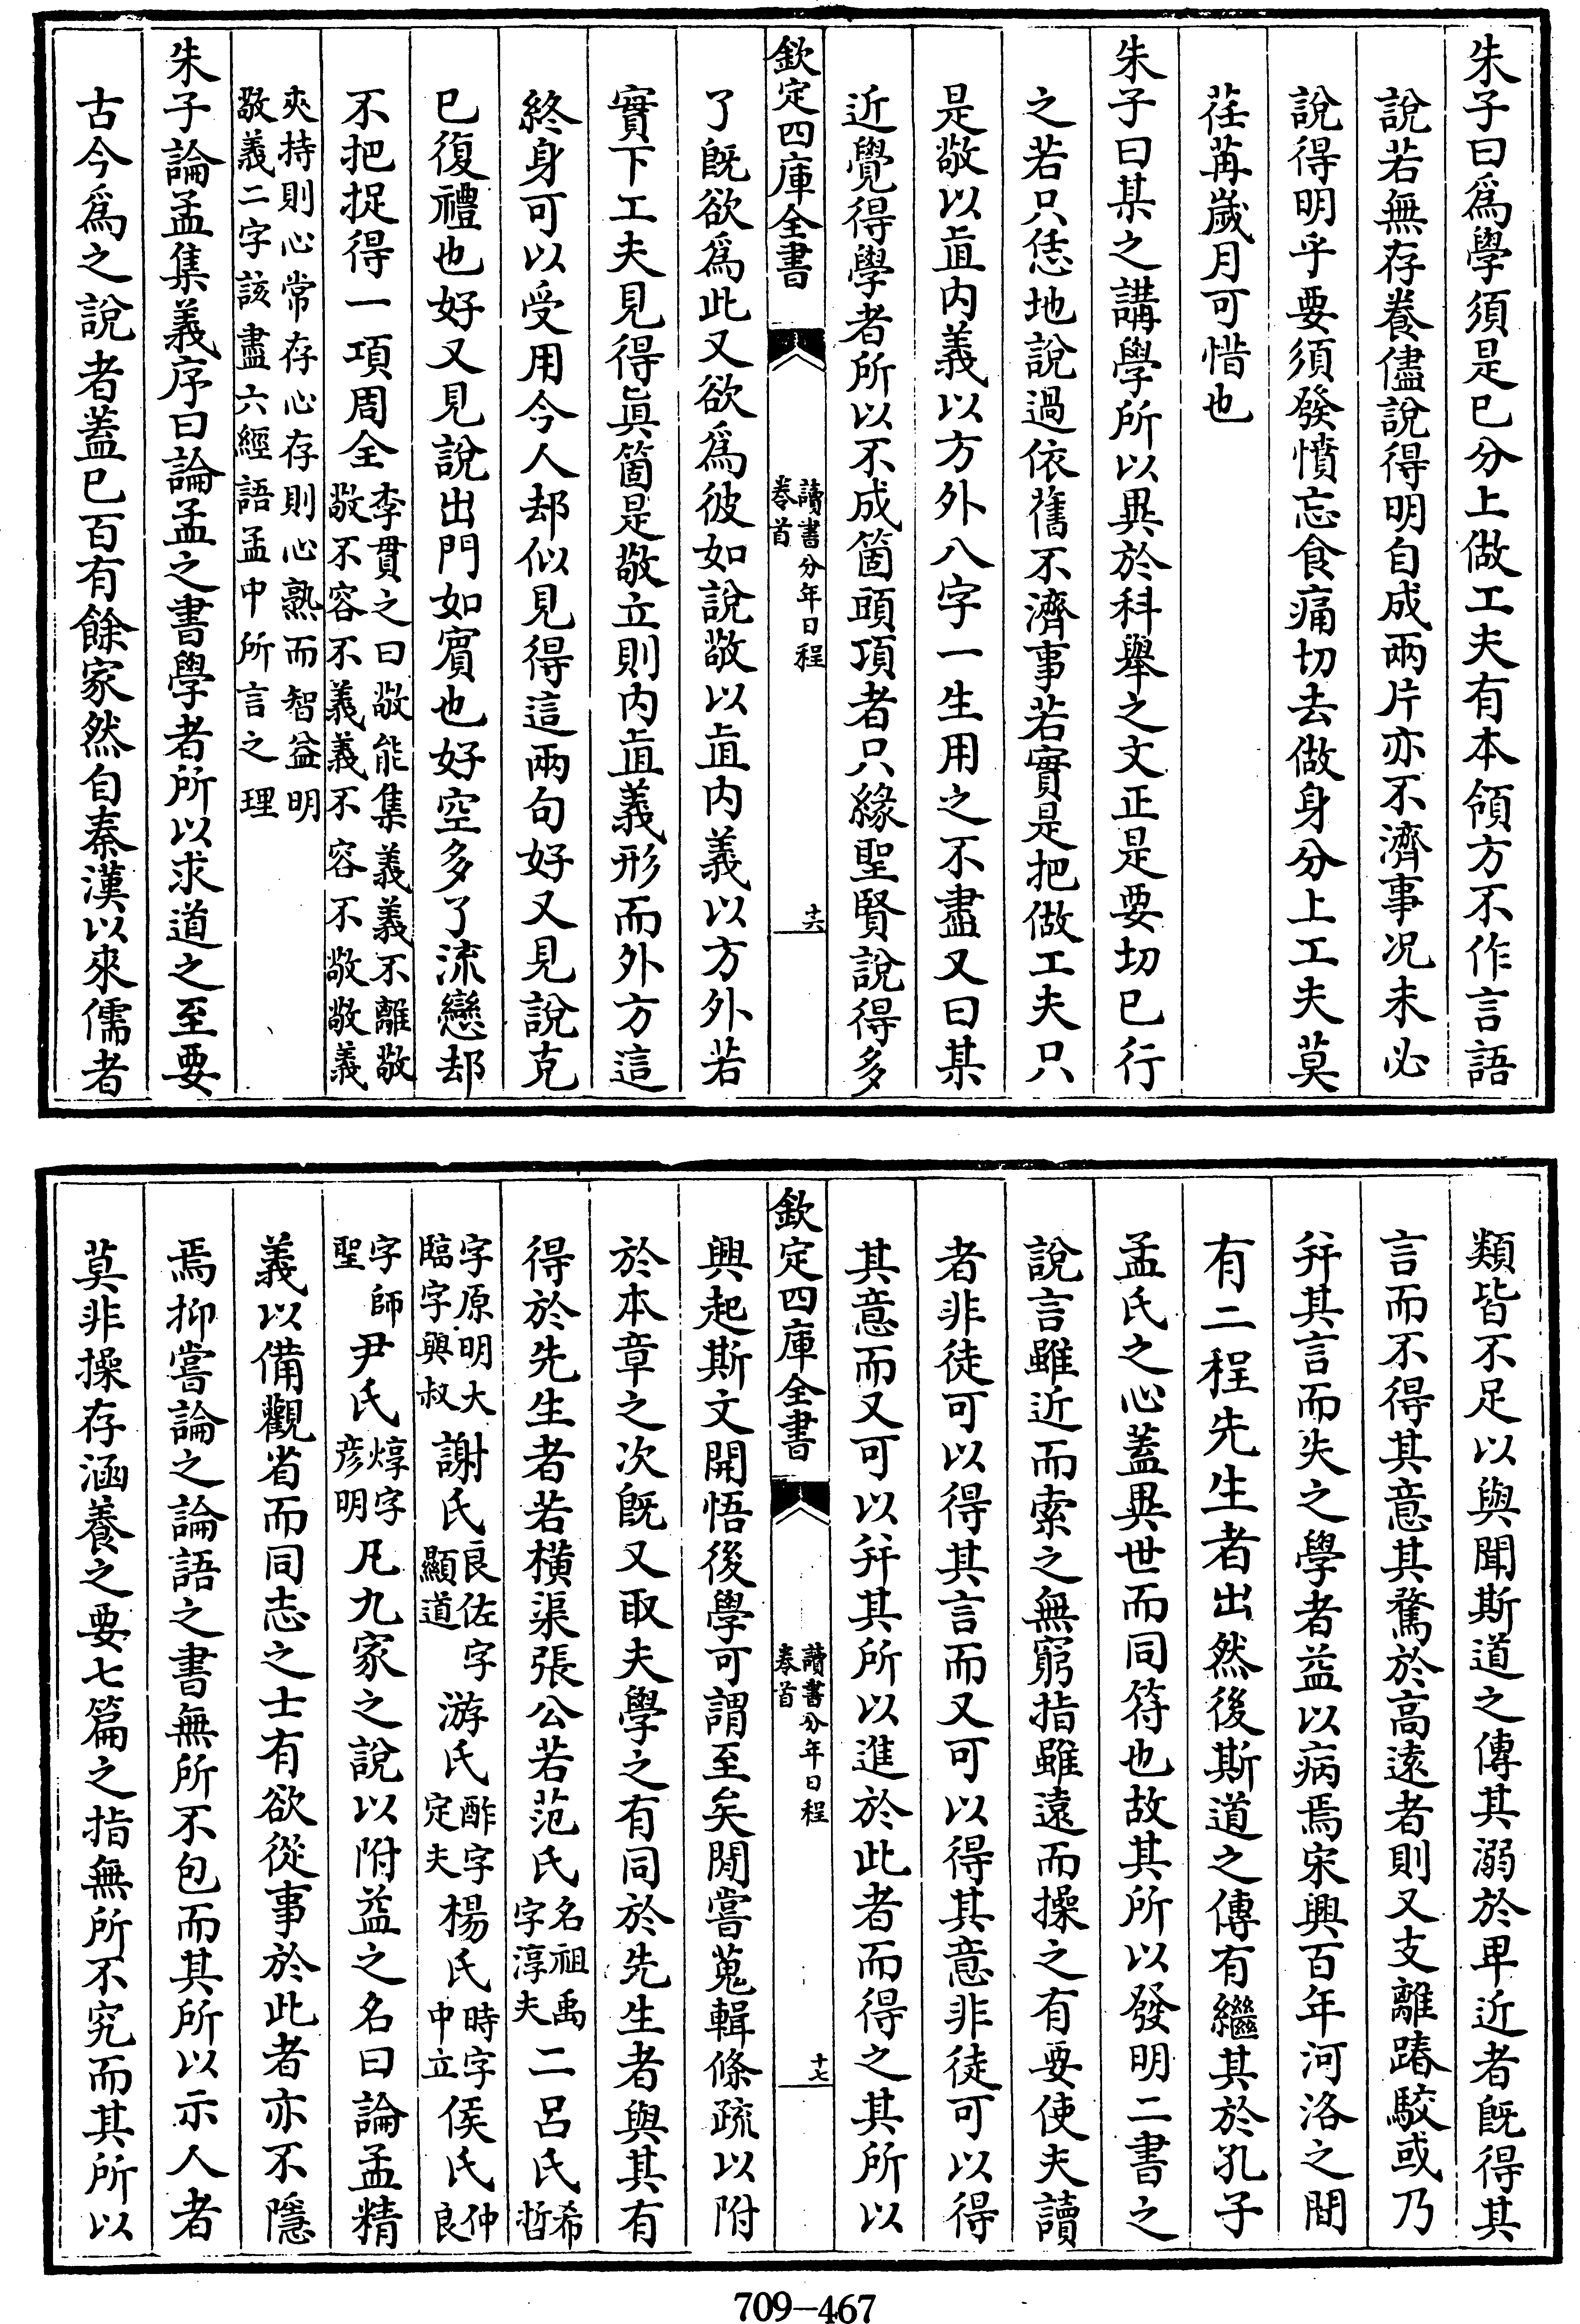 朱子曰爲學須是已分上做工夫有本領方不作言語
說若無存養儘說得明自成兩片亦不濟事况未必
說得明乎要須發憤忘食痛切去做身分上工夫莫
荏苒歲月可惜也
朱子曰某之講學所以異於科舉之文正是要切已行
之若只恁地說過依舊不濟事若實是把做工夫只
是敬以直内義以方外八字一生用之不盡又曰某
近覺得學者所以不成箇頭項者只緣聖賢說得多
欽定四庫全書
讀書分年日程
卷首
十六
了旣欲爲此又欲爲彼如說敬以直内義以方外若
實下工夫見得眞箇是敬立則内直義形而外方這
終身可以受用今人却似見得這兩句好又見說克
已復禮也好又見說出門如賓也好空多了流戀却
不把捉得一項周全李貫之曰敬能集義義不離敬
敬不容不義義不容不敬敬義
夾持則心常存心存則心熟而智益明
敬義二字該盡六經語孟中所言之理
朱子論孟集義序曰論孟之書學者所以求道之至要
古今爲之說者蓋已百有餘家然自秦漢以來儒者
類皆不足以與聞斯道之傳其溺於卑近者旣得其
言而不得其意其騖於高遠者則又支離踳駁或乃
并其言而失之學者益以病焉宋興百年河洛之間
有二程先生者出然後斯道之傳有繼其於孔子
孟氏之心蓋異世而同符也故其所以發明二書之
說言雖近而索之無窮指雖遠而操之有要使夫讀
者非徒可以得其言而又可以得其意非徒可以得
其意而又可以并其所以進於此者而得之其所以
欽定四庫全書
讀書分年日程
卷首
十七
興起斯文開悟後學可謂至矣間嘗蒐輯條疏以附
於本章之次旣又取夫學之有同於先生者與其有
得於先生者若横渠張公若范氏名祖禹
字淳夫二呂氏希
哲
字原明大
臨字與叔謝氏良佐字
顯道游氏酢字
定夫楊氏時字
中立侯氏仲
良
字師
聖尹氏焞字
彦明凡九家之說以附益之名曰論孟精
義以備觀省而同志之士有欲從事於此者亦不隱
焉抑嘗論之論語之書無所不包而其所以示人者
莫非操存涵養之要七篇之指無所不究而其所以
709-467